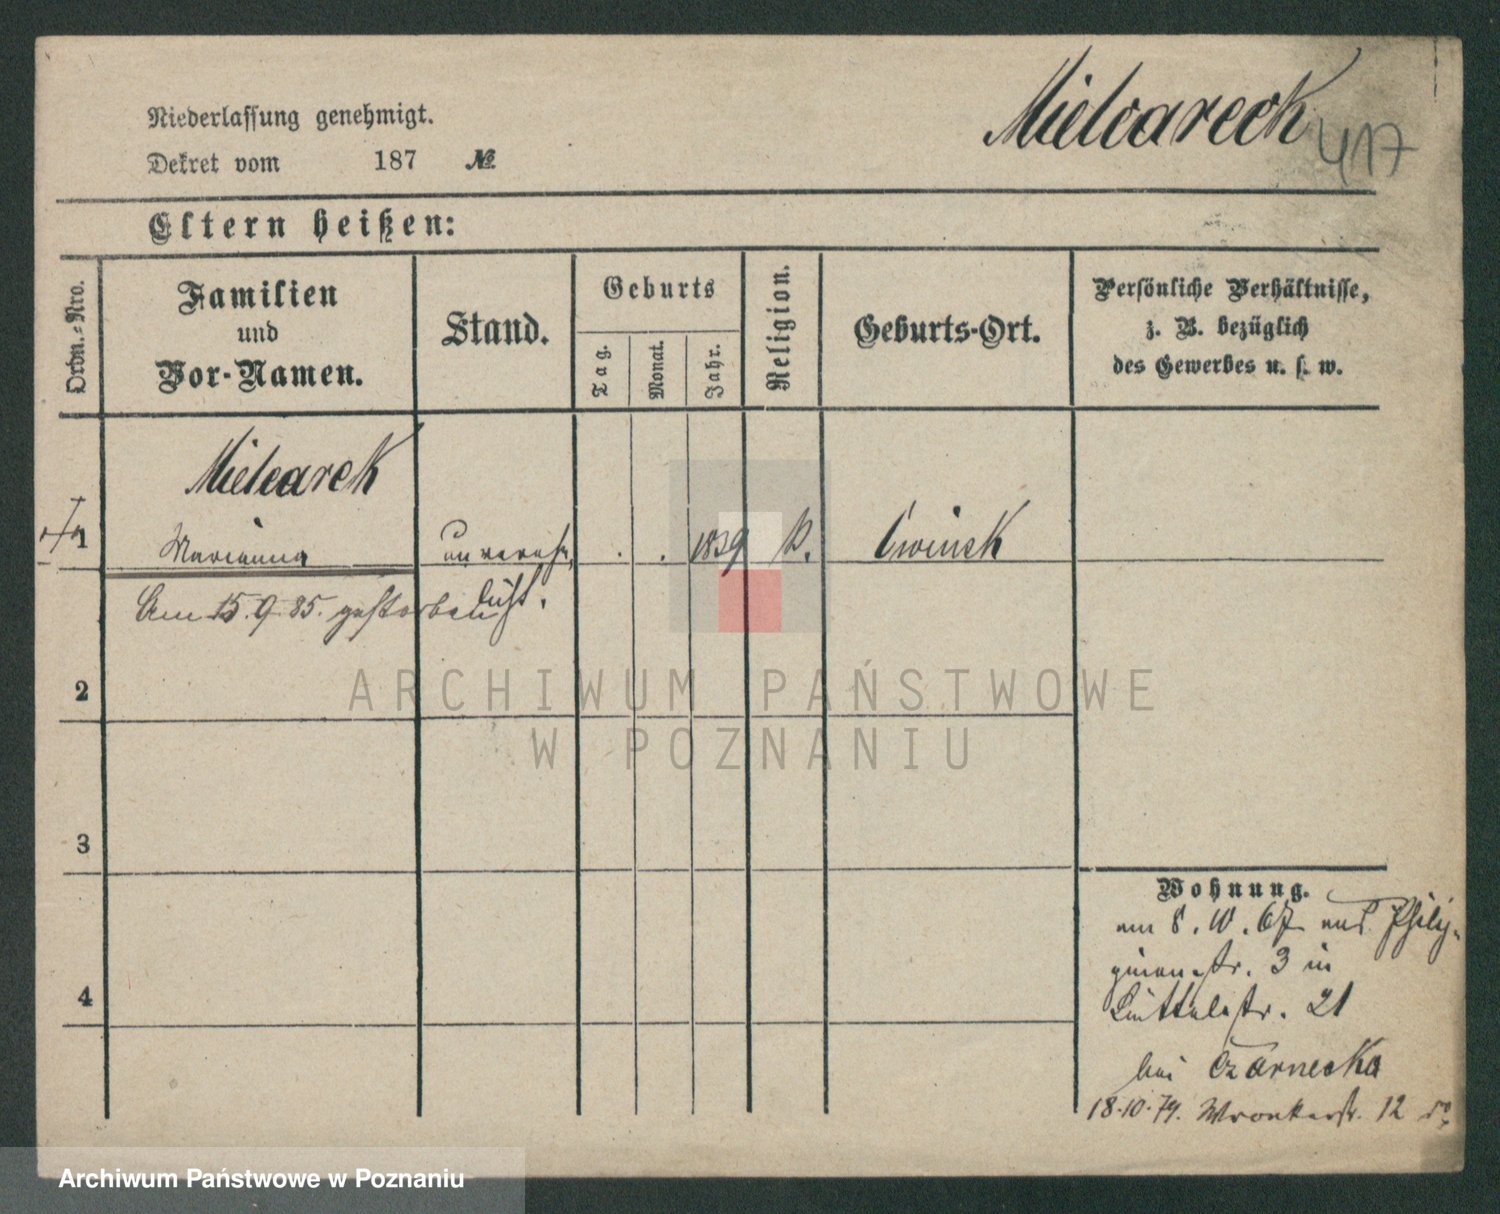 Mielcareck
417
Niederlassung genehmigt.
Dekret vom 187 №
Eltern heißen:
Ordn.-Nro.
Familien
und
Vor-Namen.
Stand.
Geburts
Tag.
Monat.
Jahr.
Religion.
Geburts-Ort.
Persönliche Verhältnisse,
z. B. bezüglich
des Gewerbes u. s. w.
Mielcarek
1 Marianna unvereh- . . 1839 k.
licht.
Am 15.9.85. gestorben
2
3
4
Wohnung.
am 8.10.67 aus
str. 3 in
str. 21
bei Czarnecka
18.10.79. Wronkerstr. 12
ARCHIWUM PAŃSTWOWE
W POZNANIU
Archiwum Państwowe w Poznaniu